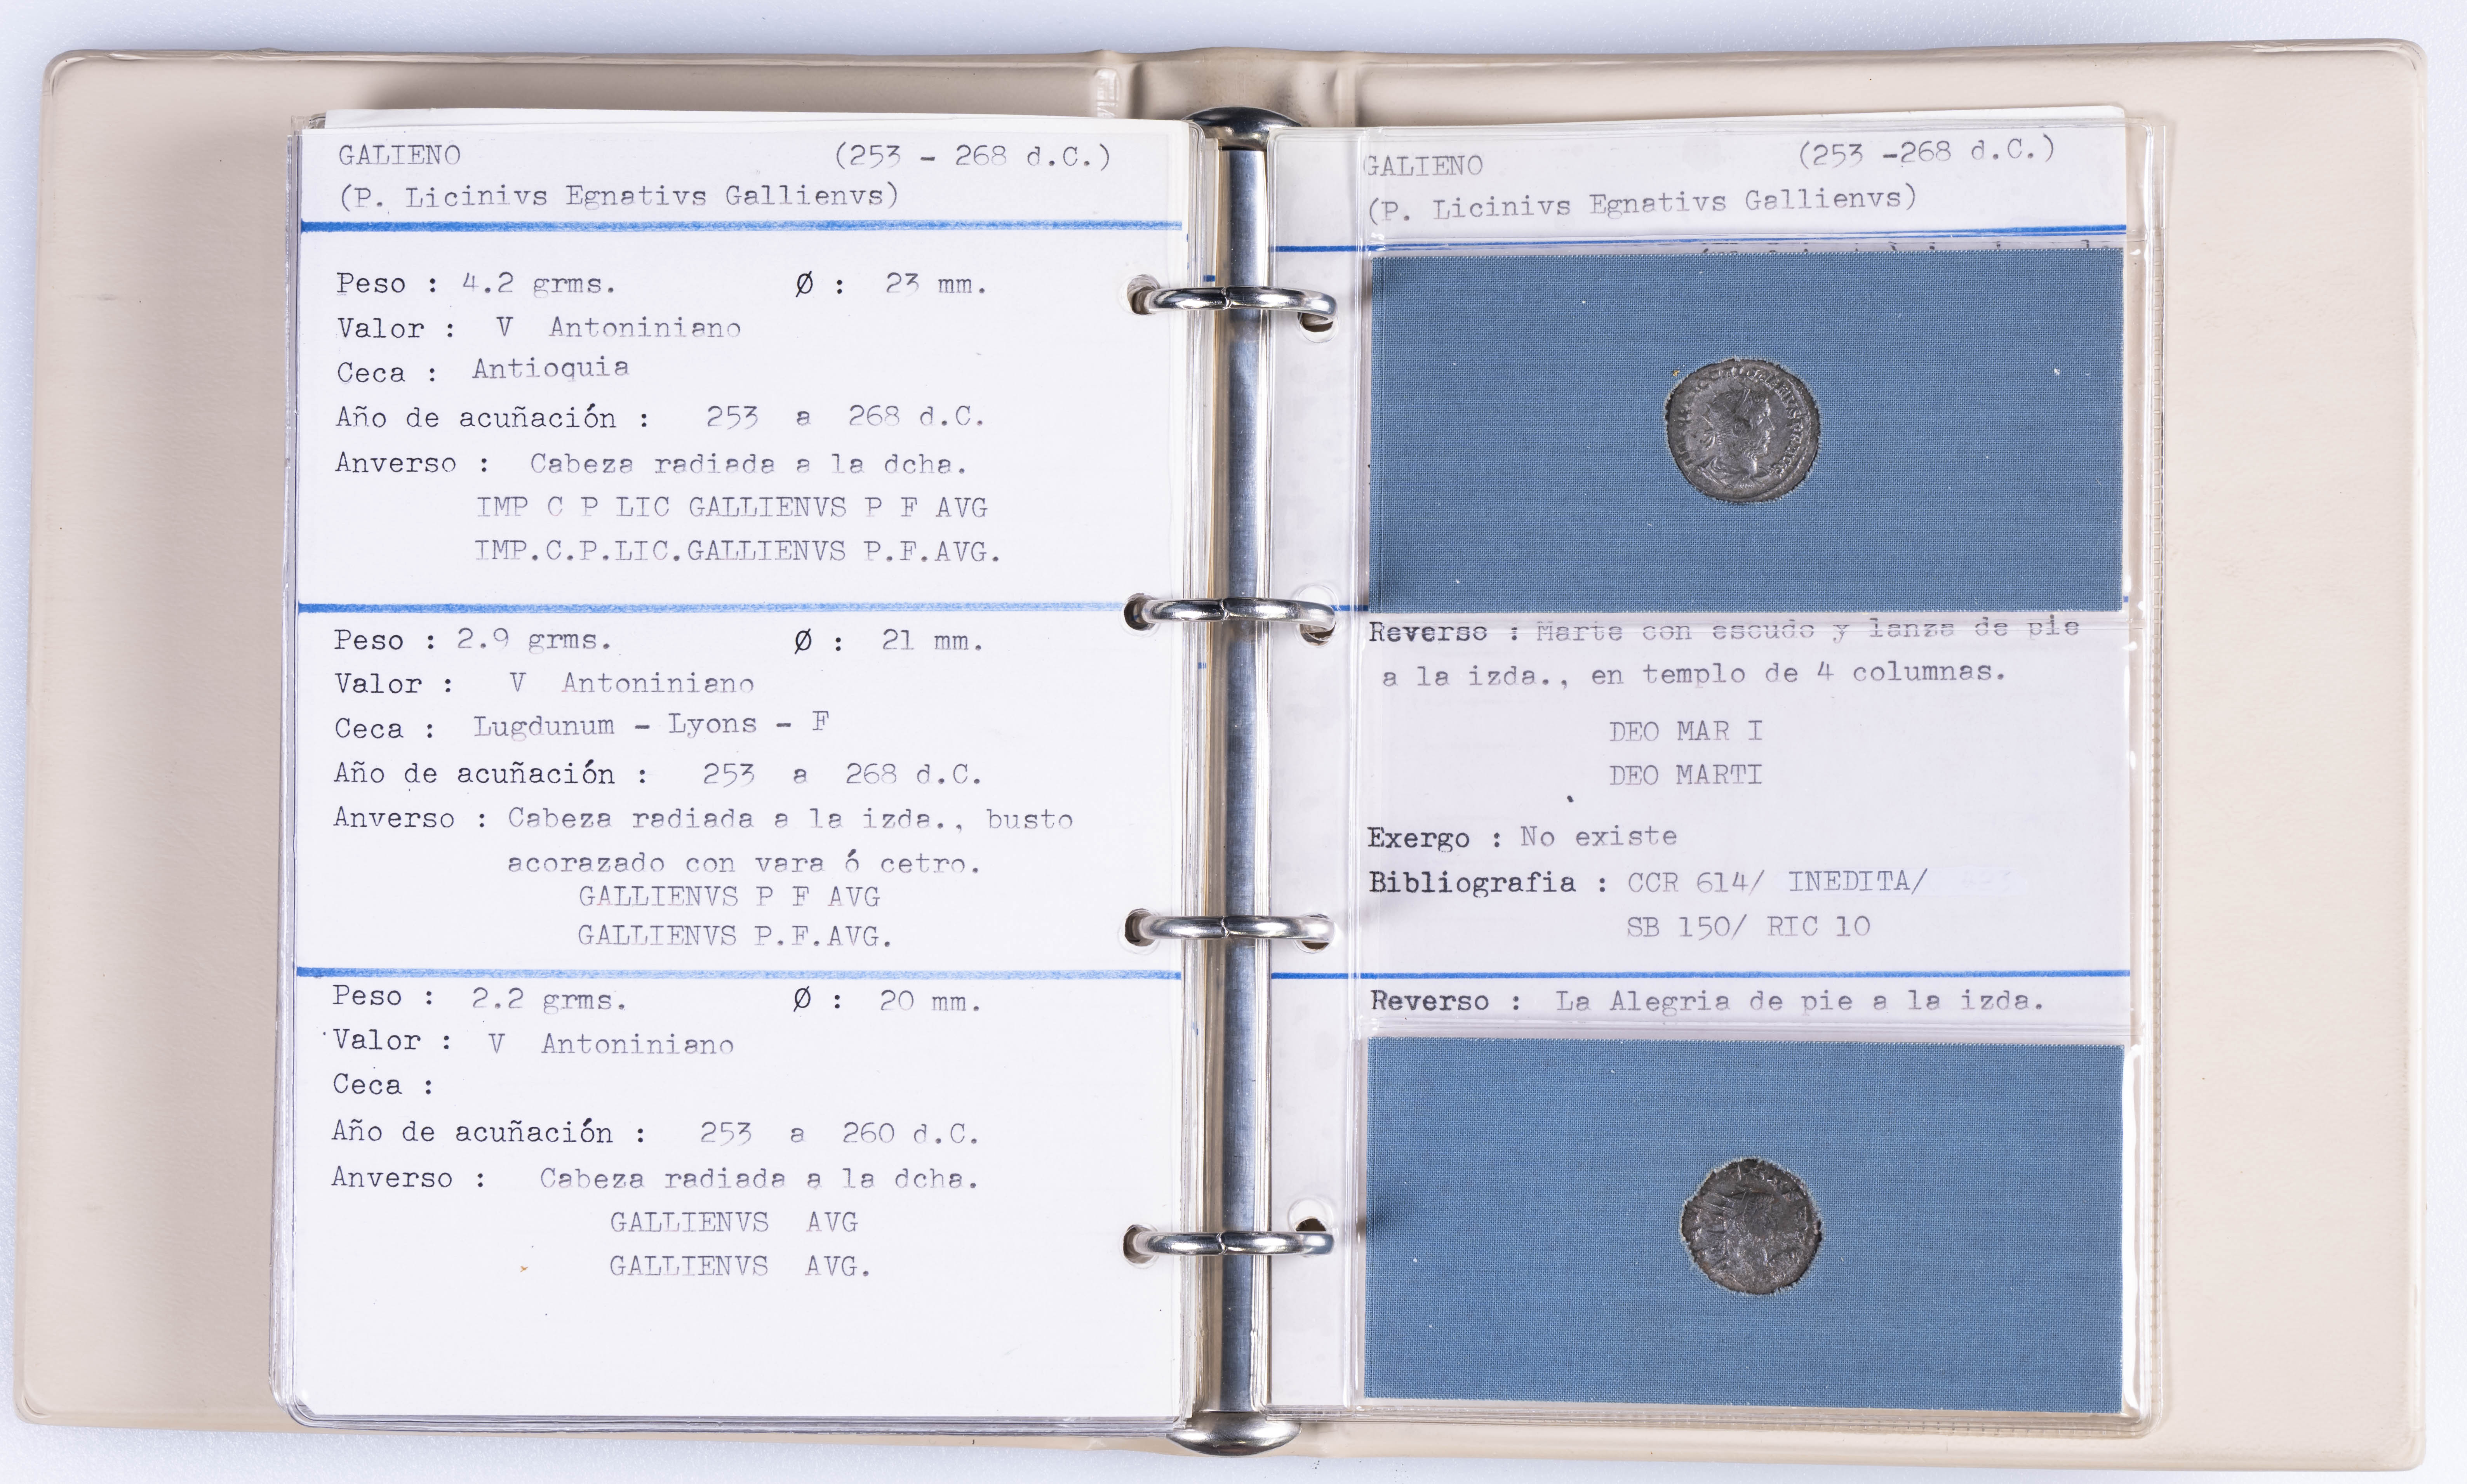 GALIENO (253 - 268 d.C.)
(P. Licinivs Egnativs Gallienvs)
Peso : 4.2 grms. Ø : 23 mm.
Valor : V Antoniniano
Ceca : Antioquia
Año de acuñación : 253 a 268 d.C.
Anverso : Cabeza radiada a la dcha.
IMP C P LIC GALLIENVS P F AVG
IMP.C.P.LIC.GALLIENVS P.F.AVG.
Peso : 2.9 grms. Ø : 21 mm.
Valor : V Antoniniano
Ceca : Lugdunum - Lyons - F
Año de acuñación : 253 a 268 d.C.
Anverso : Cabeza radiada a la izda., busto
acorazado con vara ó cetro.
GALLIENVS P F AVG
GALLIENVS P.F.AVG.
Peso : 2.2 grms. Ø : 20 mm.
Valor : V Antoniniano
Ceca :
Año de acuñación : 253 a 260 d.C.
Anverso : Cabeza radiada a la dcha.
GALLIENVS AVG
GALLIENVS AVG.
GALIENO (253 -268 d.C.)
(P. Licinivs Egnativs Gallienvs)
Reverso : Marte con escudo y lanza de pie
a la izda., en templo de 4 columnas.
DEO MAR I
DEO MARTI
Exergo : No existe
Bibliografia : CCR 614/ INEDITA/
SB 150/ RIC 10
Reverso : La Alegria de pie a la izda.